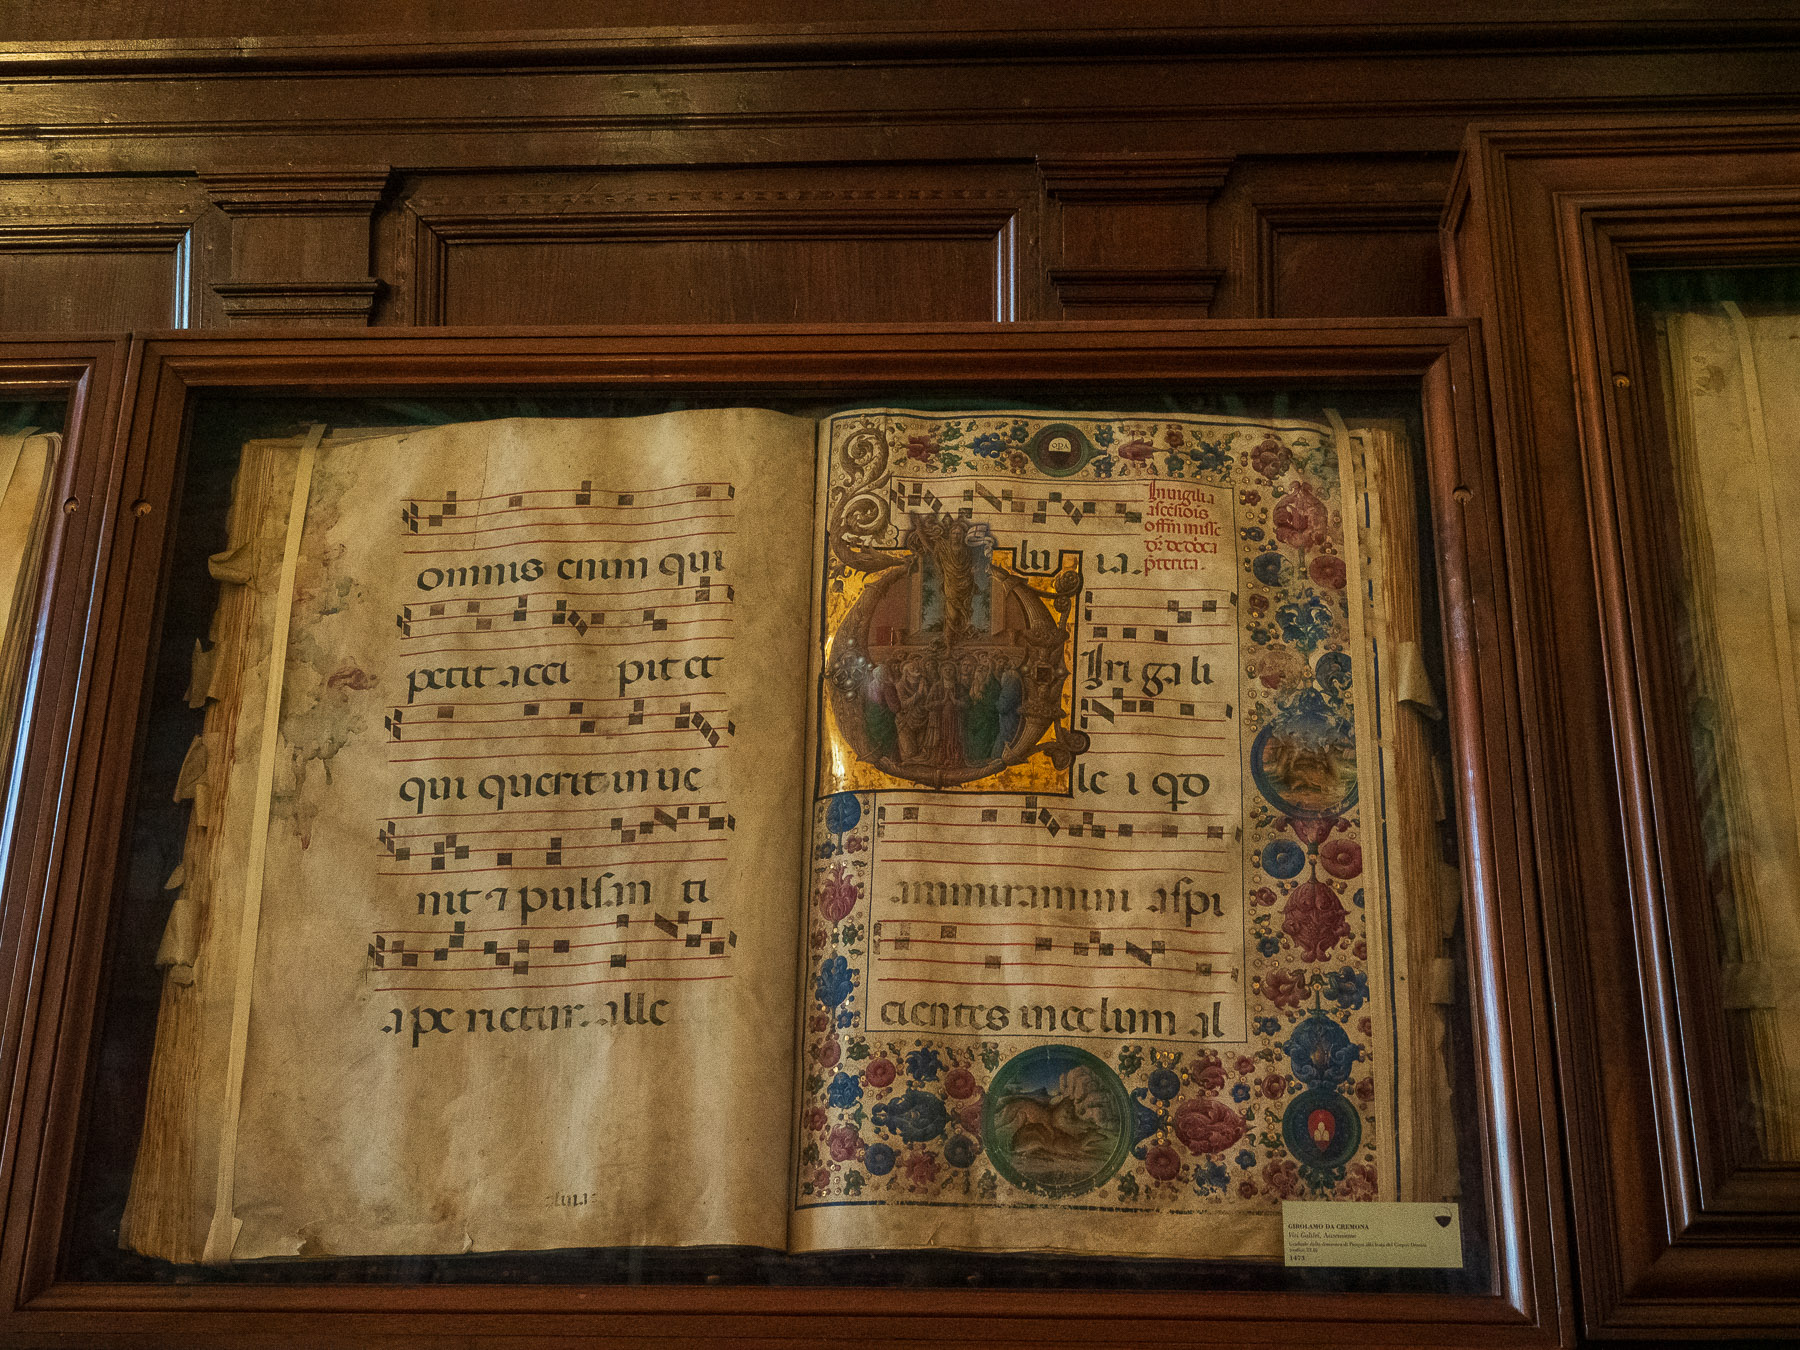 omnis enim qui
petit acci pit et
qui querit inue
nit ⁊ pulsan ti
ape rietur. alle
OPA
lu ia.
In vigilia
ascēsiōis
offm̄ misse
dr̄ de dn̄ica
p̄terita.
Viri gali
le i qd
ammiramini aspi
cientes in celum al
GIROLAMO DA CREMONA
Viri Galilei, Ascensione
1473